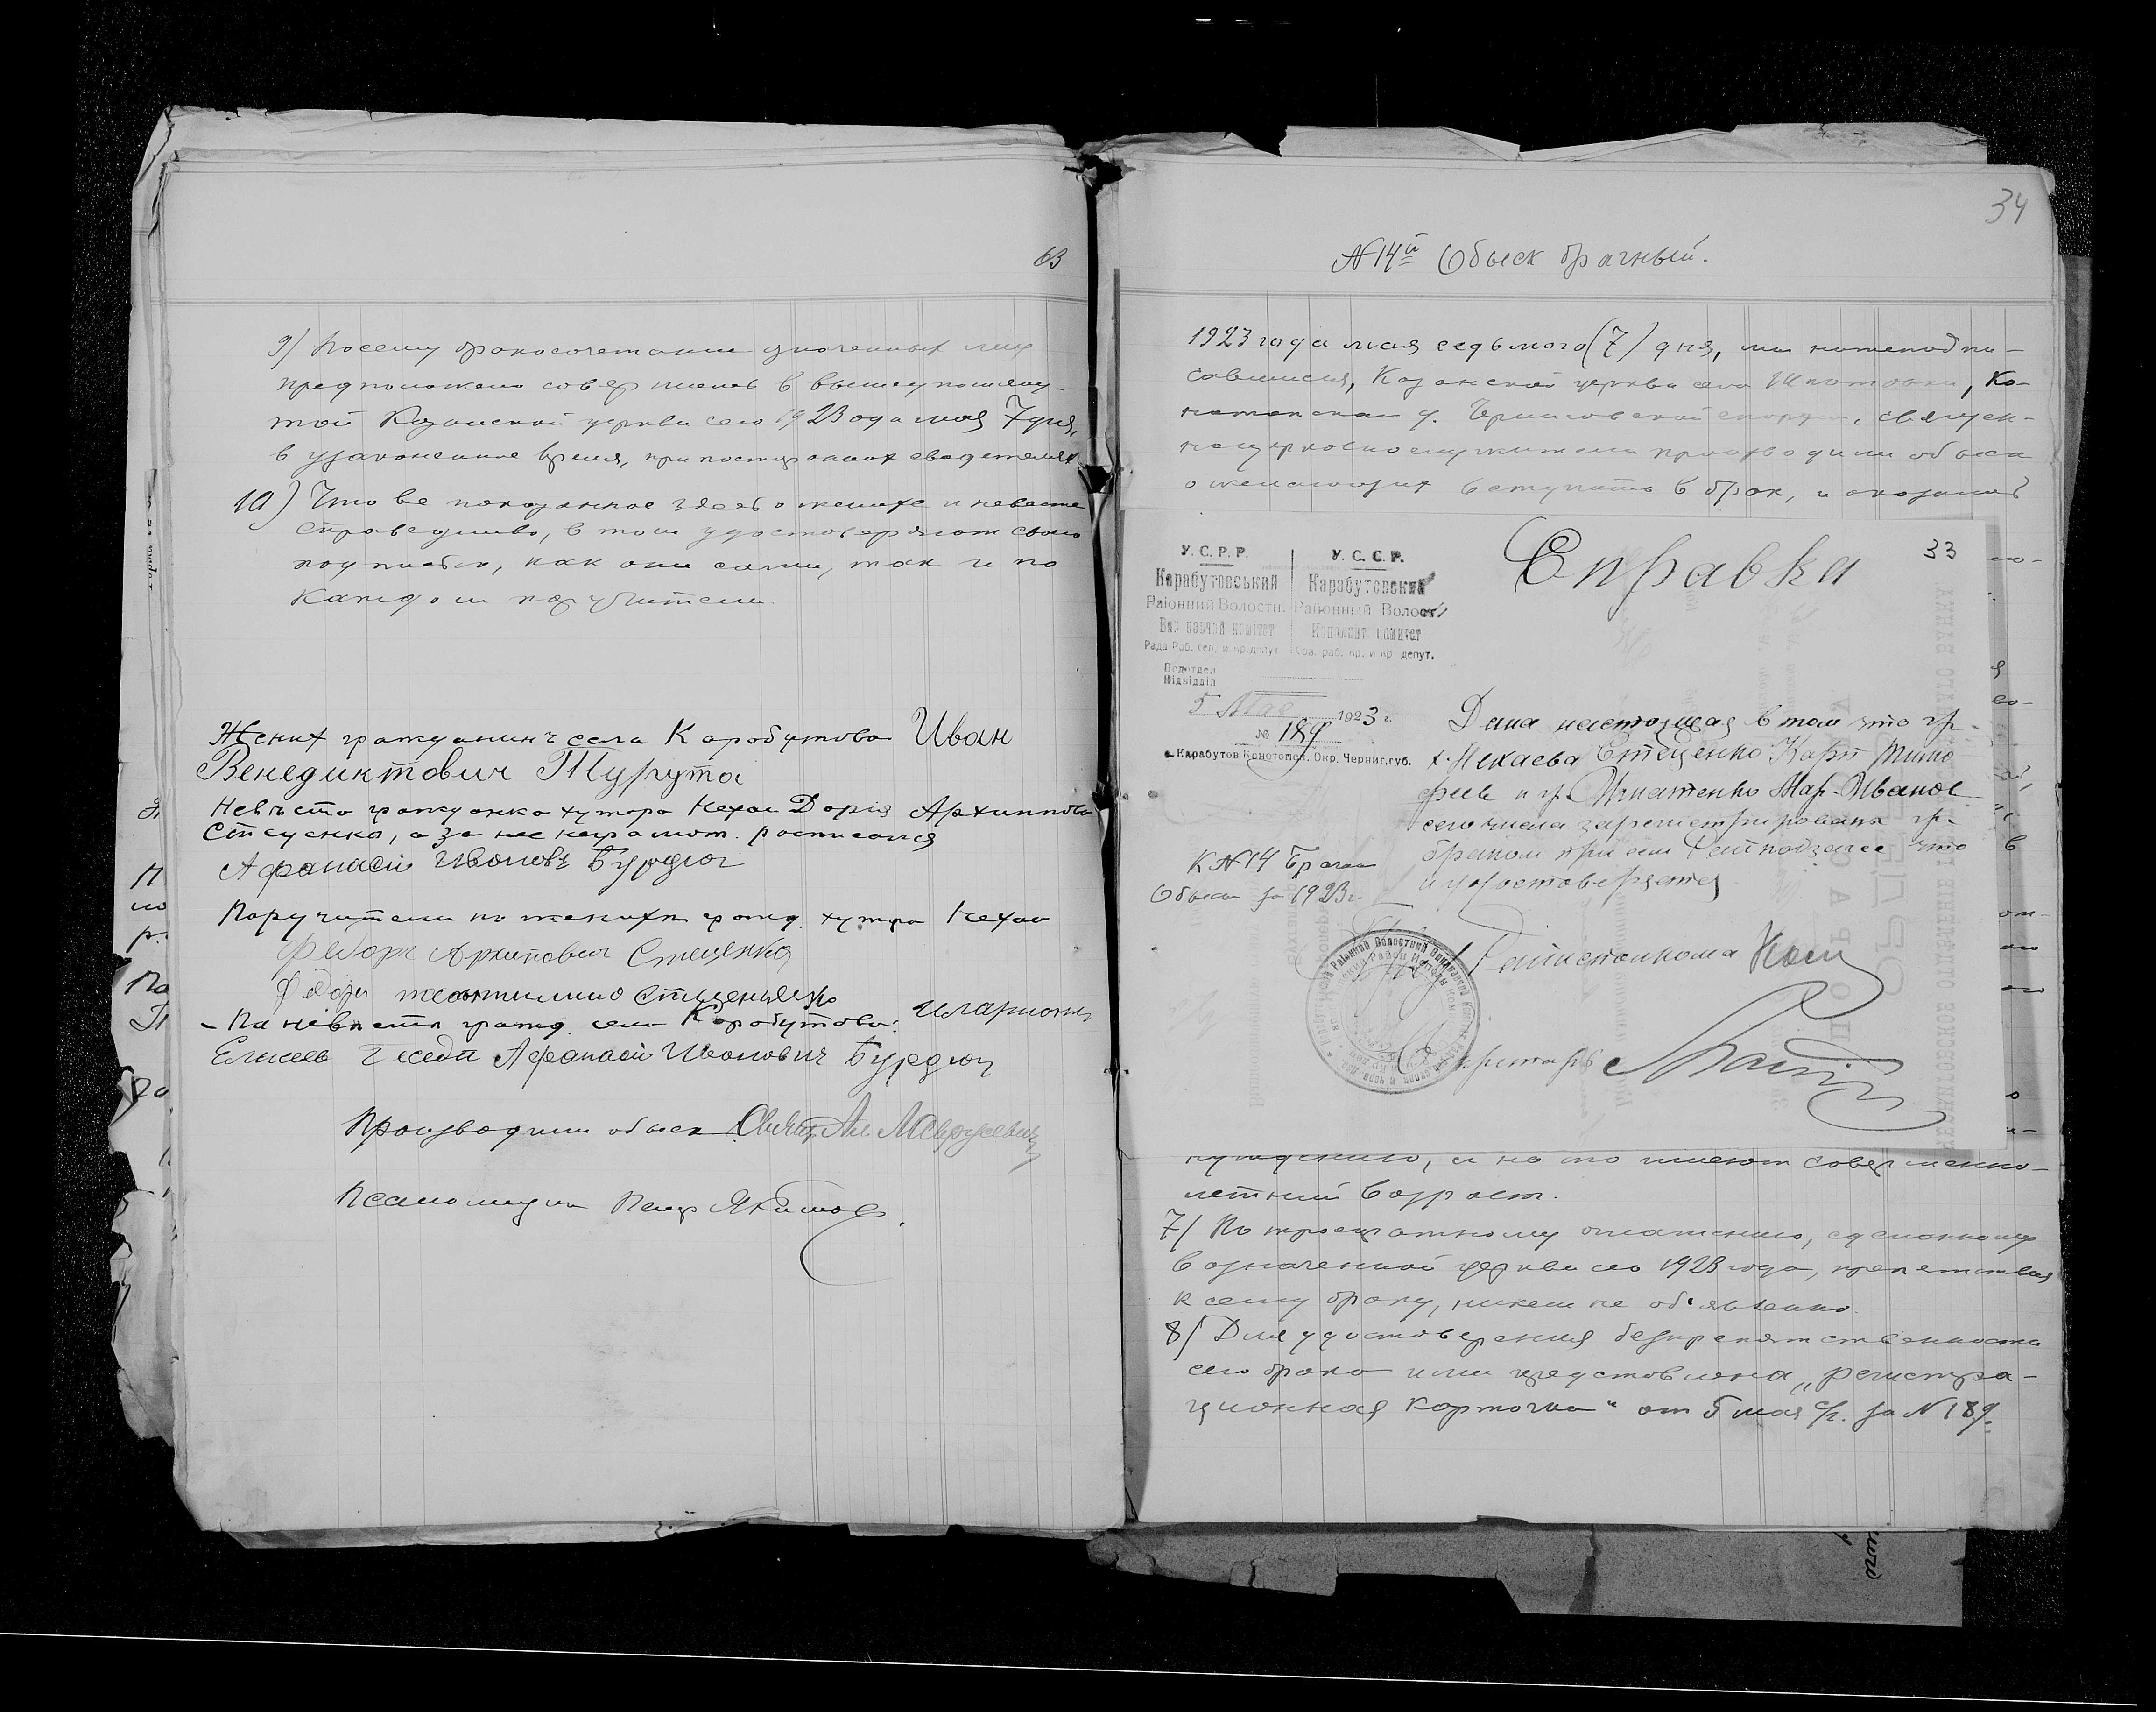 63
9) Посему бракосочетание означенных лиц
предположено совершить в вышеупомяну-
той Казанской церкви сего 1923 года мая 7 дня,
в узаконенное время, при посторонних свидетелях
10) Что все показанное здесь о женихе и невесте
справедливо, в том удостоверяют своею
подписью, как они сами, так и по
каждом поручители.
Жених гражданинъ села Коробутова Иван
Венедиктович Турута
Невѣста гражданка хутора Нехаи Дарія Архиппова
Стеценко, а за нее неграмот. расписался
Афанасій Ивановъ Бурдюг
Поручители по женихѣ гражд. хутора Нехаи
Федоръ Архипович Стеценко
Федор Стеценко
- По невѣстѣ гражд. села Коробутова: Иларионъ
Елисеев Афанасій Иванович Бурдюг
Производили обыск Свящ.
Псаломщик Петр
34
№ 14й Обыск брачный.
1923 года мая седьмого (7) дня, мы нижеподпи-
савшиеся, Казанской церкви села Шпотовки, Ко-
нотопского у. Черниговской епархии, священ-
ноцерковнослужители производили обыск
о желающих вступить в брак, и оказалось
33
Справка
У. С. Р. Р.
Карабутовський
Раіонний Волостн.
Виконавчий комітет
Рада Роб. сел. и кр. депут
У. С. С. Р.
Карабутовский
Районный Волост.
Исполнит. комитет
Сов. раб. кр. и кр. депут.
Подотдел
Відвідділ
5 Мая 1923 г.
№ 189
с. Карабутов Конотопск. Окр. Черниг. губ.
К № 14 Брачн.
Обыска за 1923 г.
Дана настоящая в том что гр.
х. Нехаева Стеценко Карп Тимо
феев и гр. Игнатенко Мар. Иванов
сего числа зарегистрированы гр.
браком при сем что
и удостоверяется
Райисполкома
Секретарь
нуждению, и на то имеют совершенно-
летний возраст.
7) По троекратному оглашению, сделанному
в означенной церкви сего 1923 года, препятствия
к сему браку, никем не объявлено.
8) Для удостоверения безпрепятственности
сего брака ими представлена „регистра-
ционная карточка" от 5 мая с/г. за № 189.